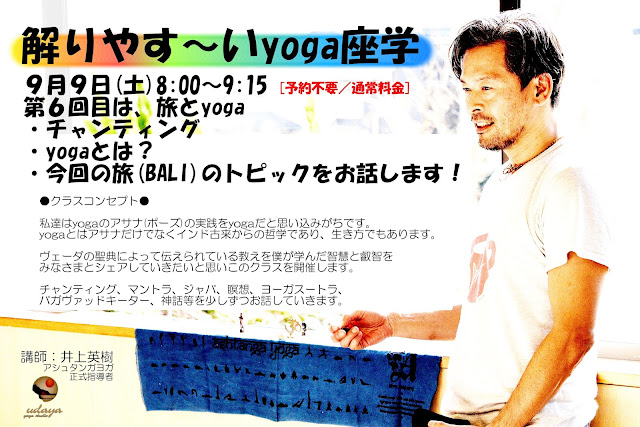 解りやす〜いyoga座学
9月9日(土)8:00〜9:15 [予約不要/通常料金]
第6回目は、旅とyoga
・チャンティング
・yogaとは？
・今回の旅(BALI)のトピックをお話します！
●クラスコンセプト●
私達はyogaのアサナ(ポーズ)の実践をyogaだと思い込みがちです。
yogaとはアサナだけでなくインド古来からの哲学であり、生き方でもあります。
ヴェーダの聖典によって伝えられている教えを僕が学んだ智慧と叡智を
みなさまとシェアしていきたいと思いこのクラスを開催します。
チャンティング、マントラ、ジャパ、瞑想、ヨーガスートラ、
バガヴァッドキーター、神話等を少しずつお話していきます。
ashtanga yoga
講師：井上英樹
アシュタンガヨガ
正式指導者
udaya
yoga studio